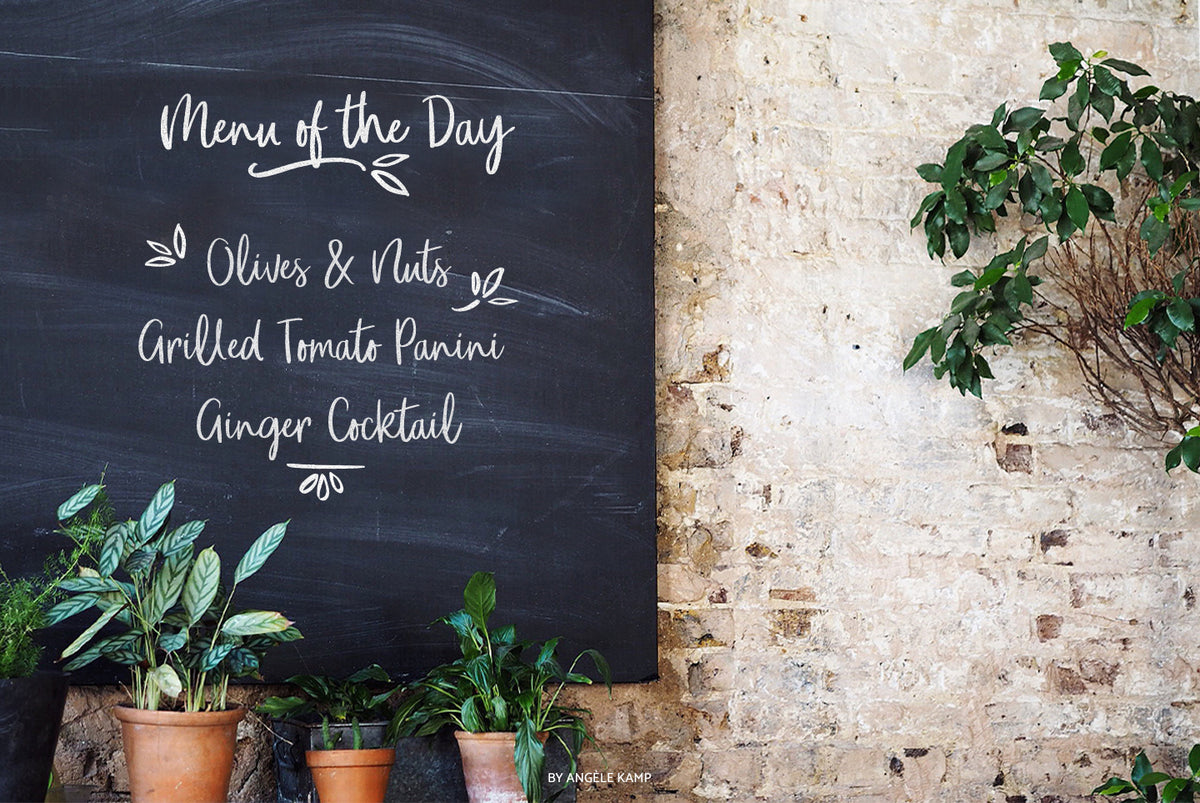 Menu of the Day
Olives & Nuts
Grilled Tomato Panini
Ginger Cocktail
BY ANGÈLE KAMP